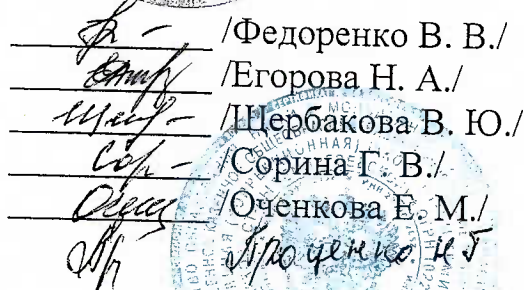 /Федоренко В. В./
/Егорова Н. А./
/Щербакова В. Ю./
/Сорина Г. В./
/Оченкова Е. М./
Проценко Н Г